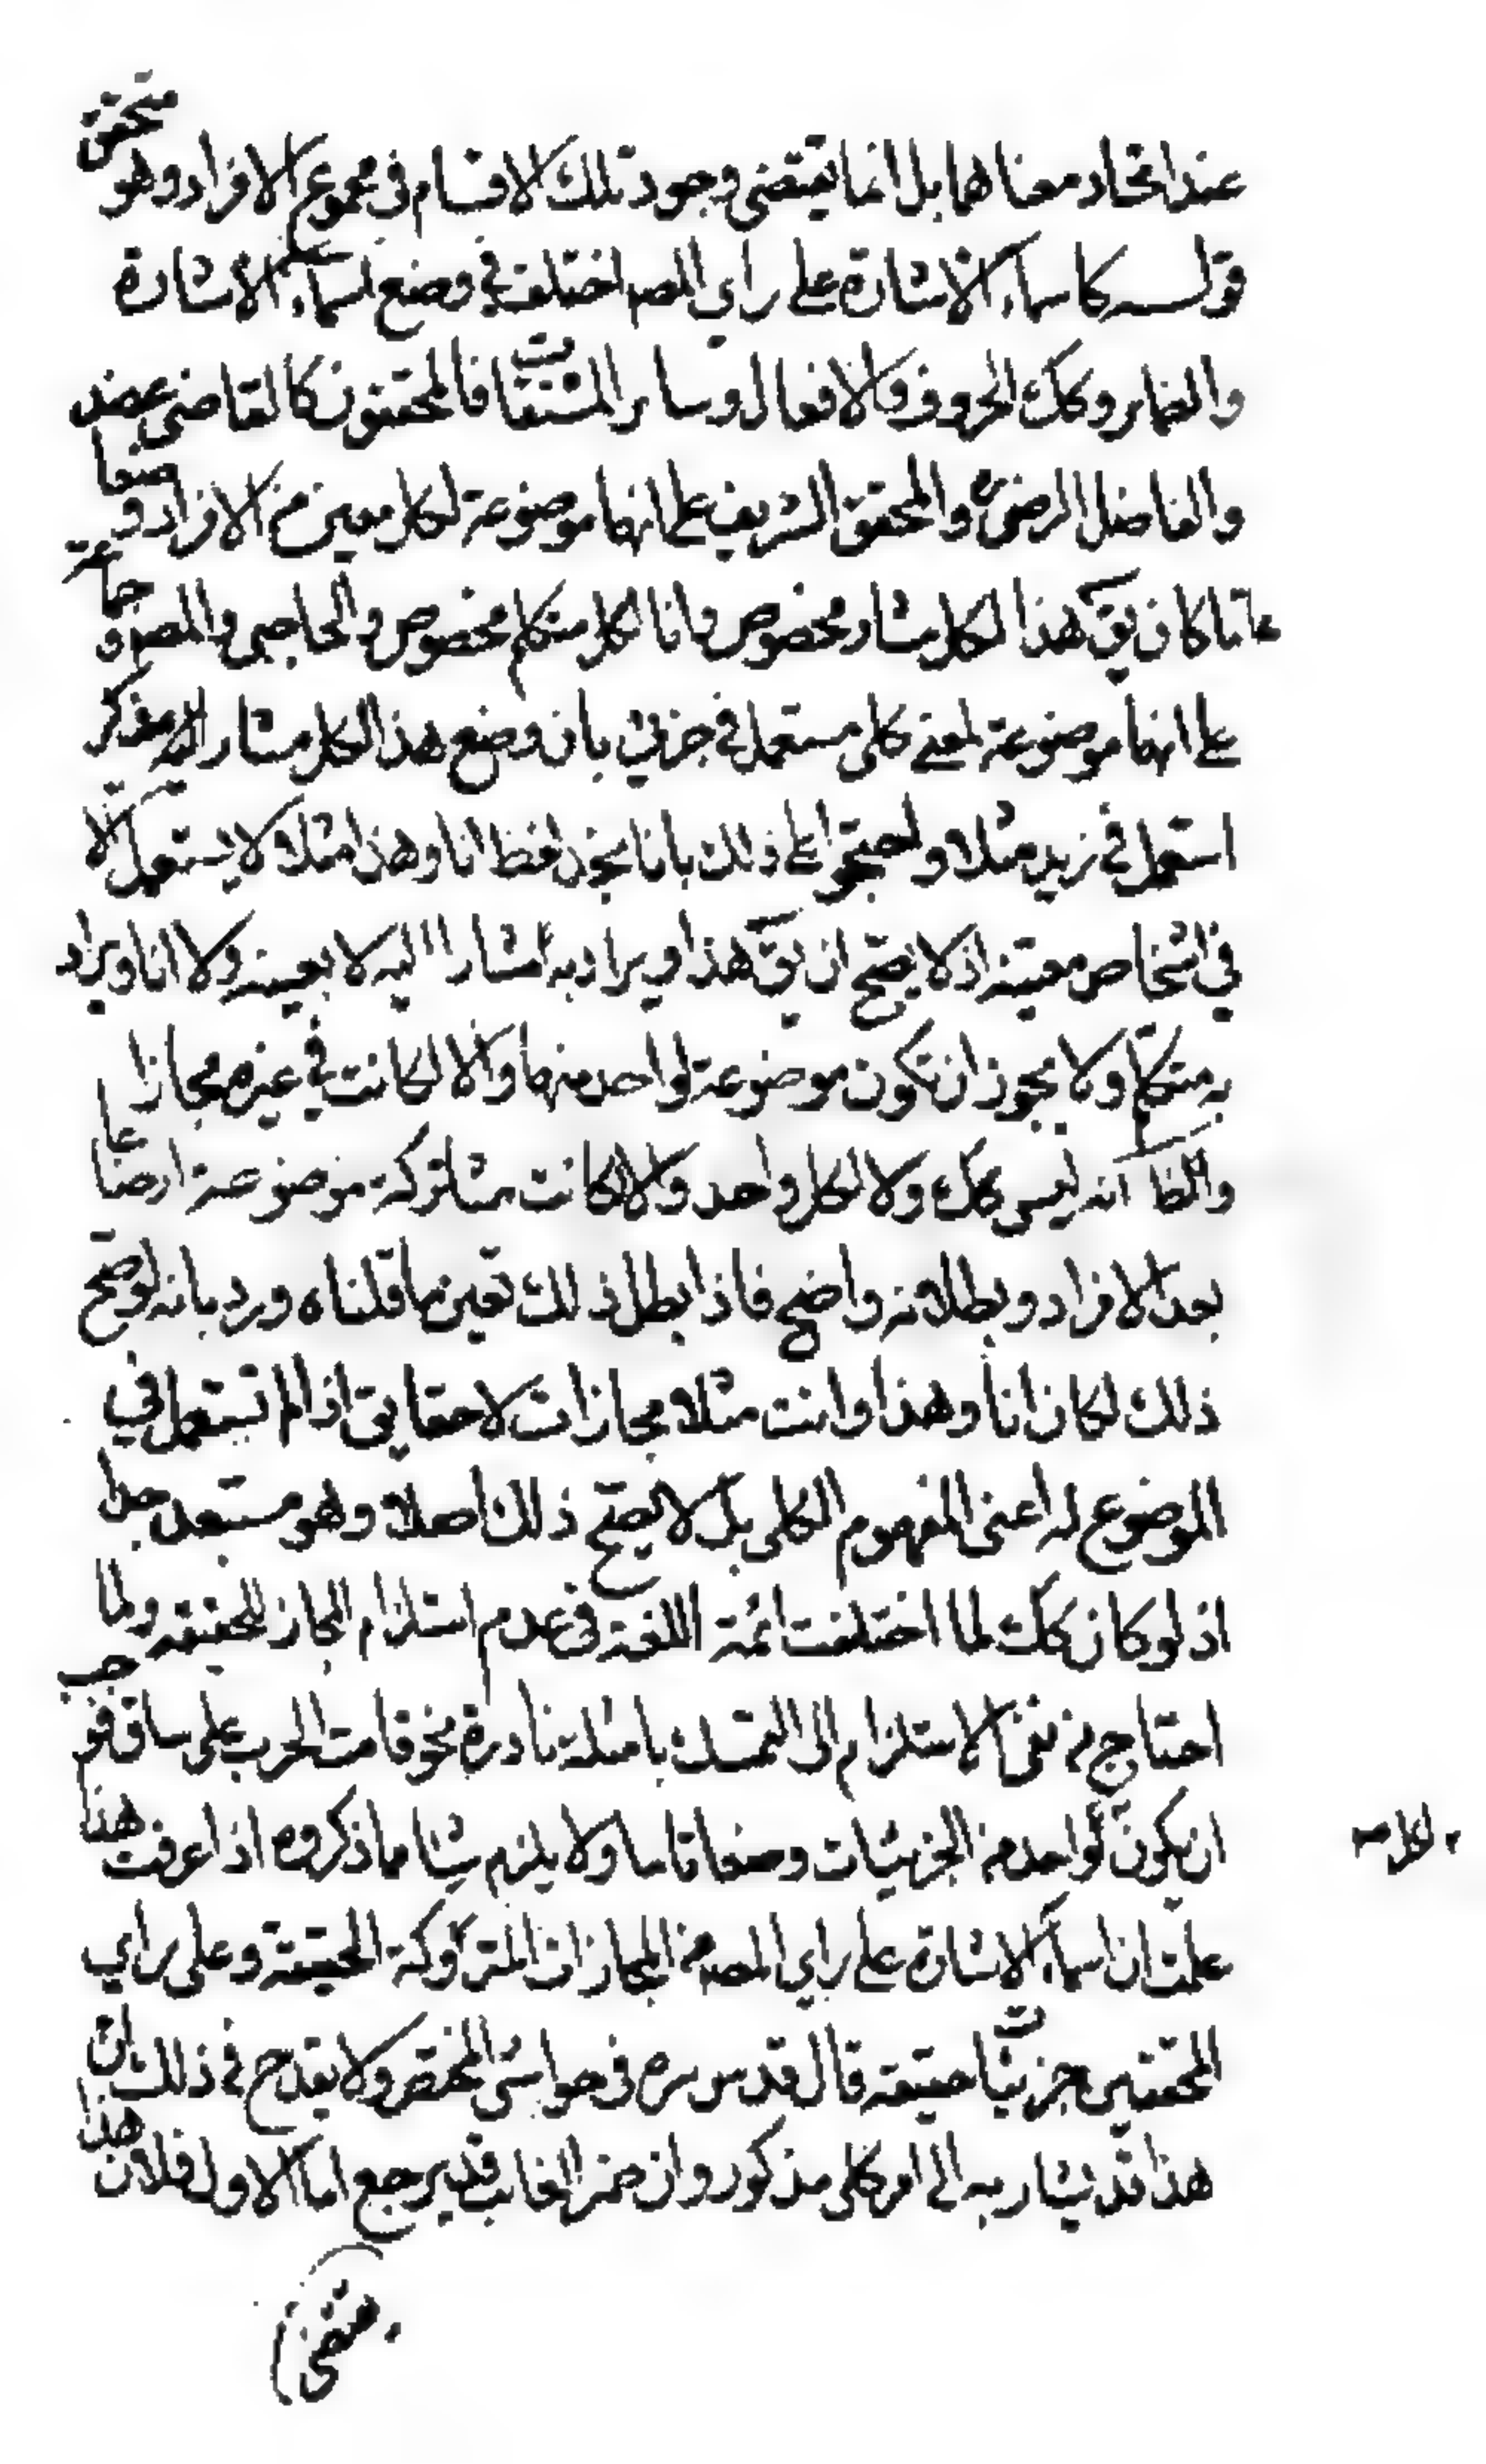 عند اتحاد معناهما بل انما يقتضى وجود تلك الاقسام فى مجموع الافراد وهو متحقق
قولــه كاسماء الاشارة على راى المصـ اختلف في وضع اسماء الاشارة
والضماير وكك الحروف والافعال وساير المشتقات فالمحققون كالقاضى عضد
والفاضل الرضى والمحقق الشريف على انها موضوعة لكل معين من الافراد وضعا
عاما كان يقَ هذا لكل مشار مخصوص وانا لكل متكلم مخصوص والحاجبى والمصـ وجماعة
على انها موضوعة لمعنى كلى مستعمل في جزئى بان وضع هذا لكل مشار اليه مذكر
استعمل في زيد مثلا واحتجوا على ذلك بانا نجد لفظ انا وهذا مثلا لا يستعمل الا
في اشخاص معينة اذ لا يصح ان يقَ هذا ويراد به مشارا اليه لا بعينه ولا انا ويراد
به متكلم ولا يجوز ان تكون موضوعة لواحد منها والا لكانت في غيره مجازا
والظاَ انه ليس كك ولا لكل واحد والا لكانت مشتركة موضوعة اوضاعا
بعدد الافراد وبطلانه واضح فاذا بطل ذلك تعين ما قلناه ورد بانه لو صح
ذلك لكان انا وهذا وانت مثلا مجازات لا حقايق اذا لم تستعمل في
الموضوع له اعنى المفهوم الكلى بل لا يصح ذلك اصلا وهو مستبعد جدا
اذ لو كان كك لما اختلفت ائمة اللغة فى عدم استلزام المجاز للحقيقة ولما
احتاج من نفى الاستلزام الى التمسك بامثلة نادرة نحو قامت الحرب على ساق فوجب
ان يكون لواحد من الجزئيات وضعا تاما ولا يلزم شيئا مما ذكروه اذا عرفت هذا
لكل صـ
علمت ان اسماء الاشارة على راي المصـ من المجازات المتروكة الحقيقة وعلى راي
المحققين جزئيات حقيقة قال قدس سره فى حواشى المختصر ولا يقدح فى ذلك ان
هذا قد يشار به الى امر كلى مذكور وان ضمير الغائب قد يرجع اما الاول فلان هذا